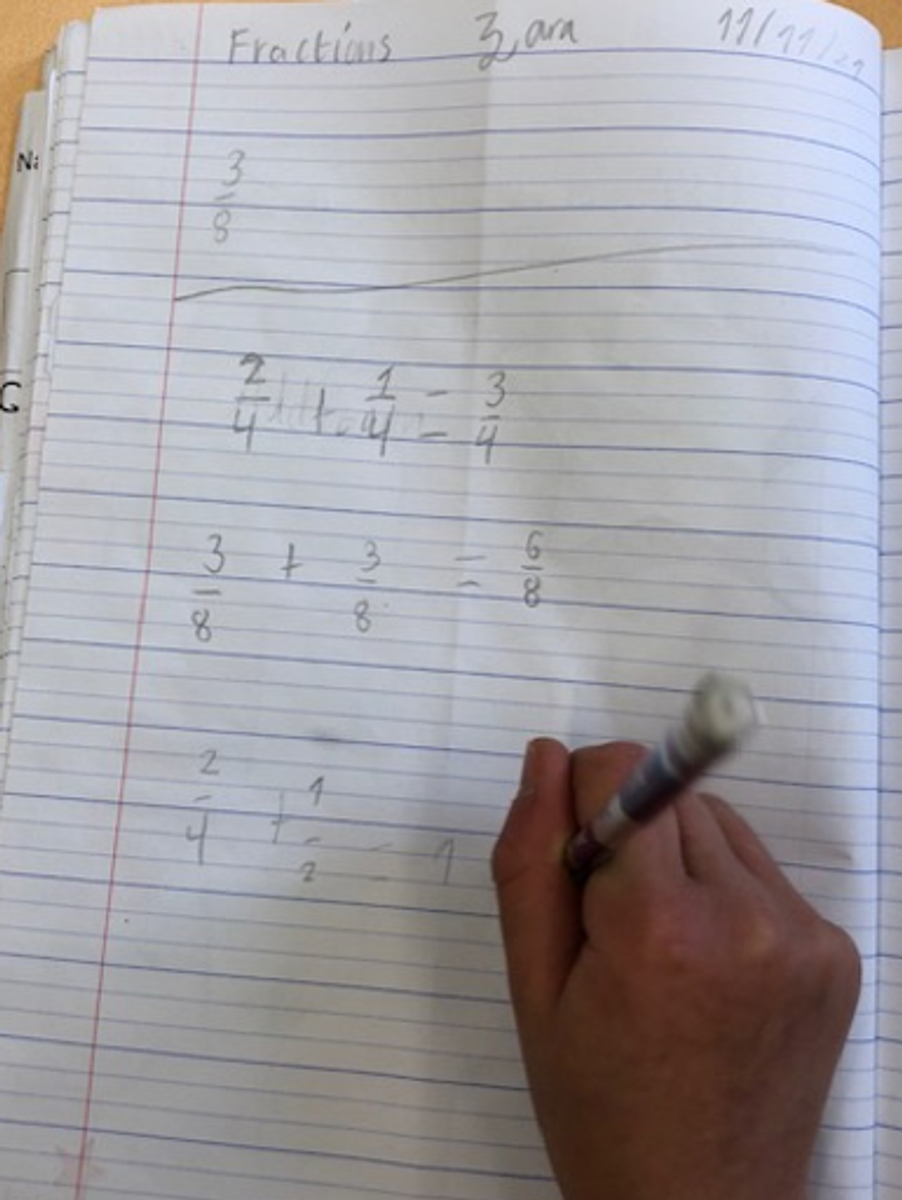 Fractions Zara 11/11/21
3/8
2/4 + 1/4 = 3/4
3/8 + 3/8 = 6/8
2/4 + 1/2 = 1